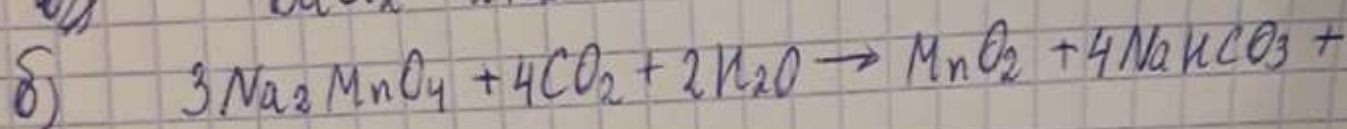 б) 3Na₂MnO₄ + 4CO₂ + 2H₂O → MnO₂ + 4NaHCO₃ +